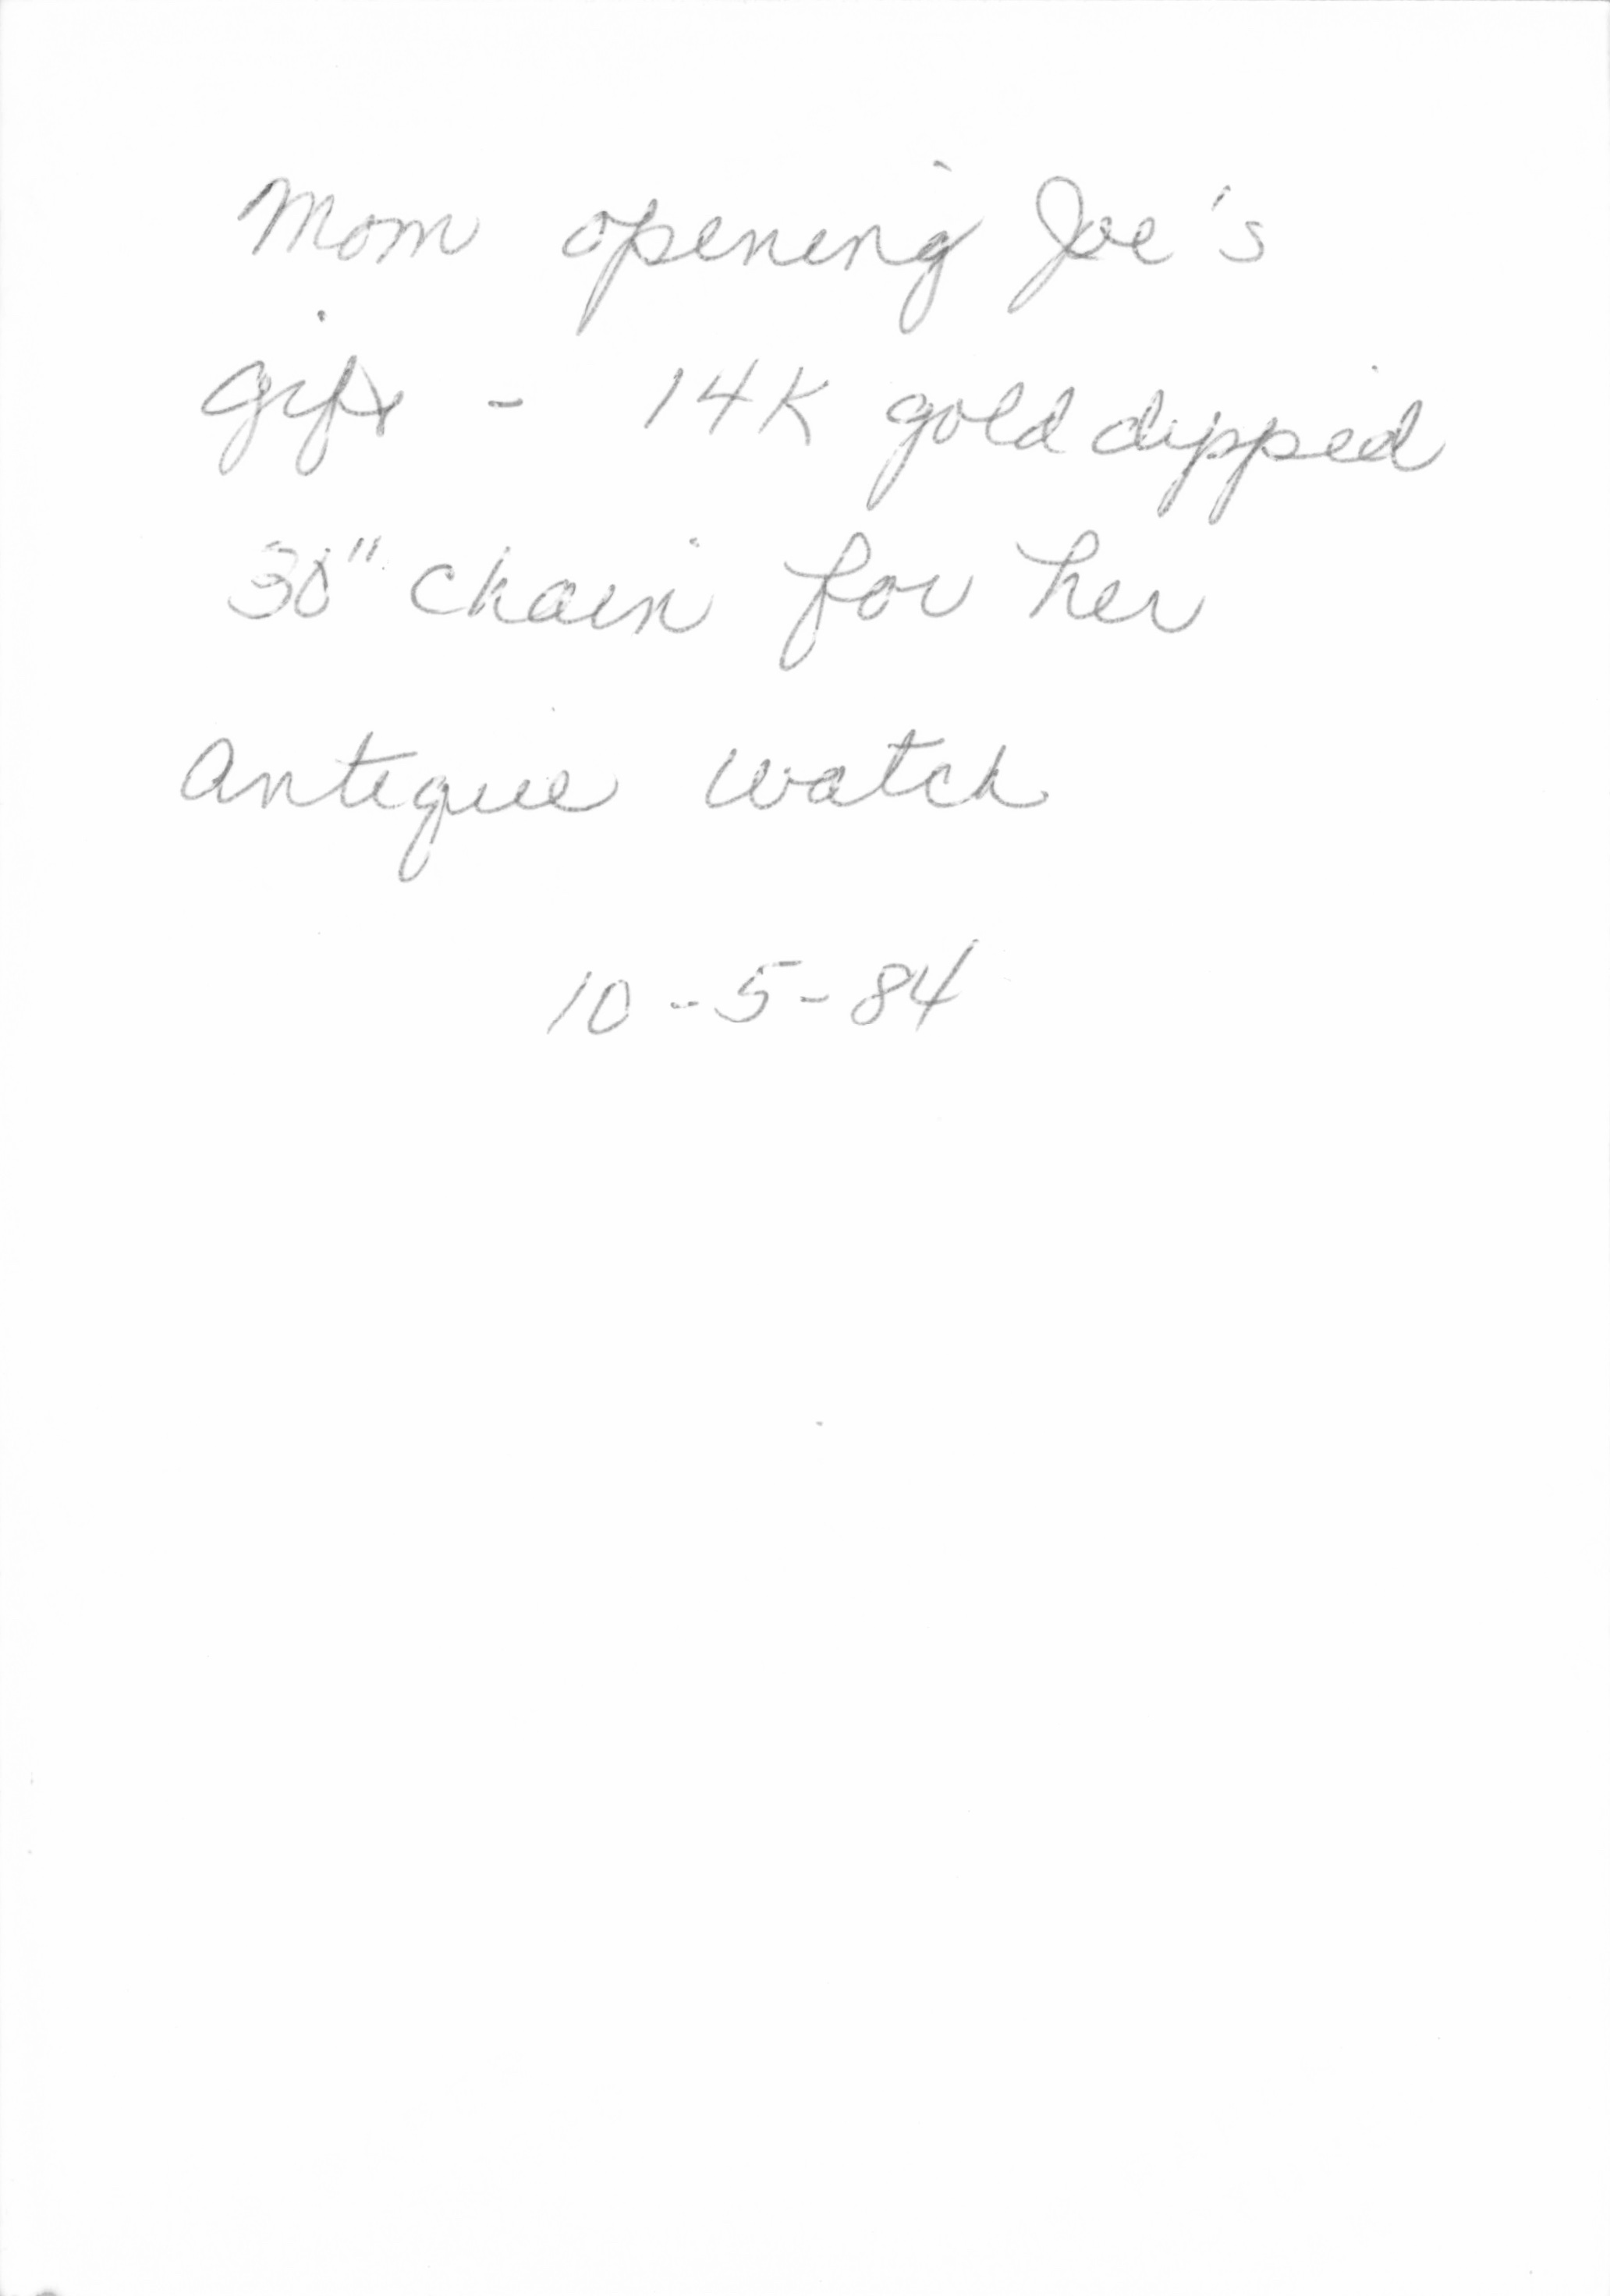 Mom opening Joe's
gift - 14K gold dipped
30" chain for her
antique watch
10-5-84